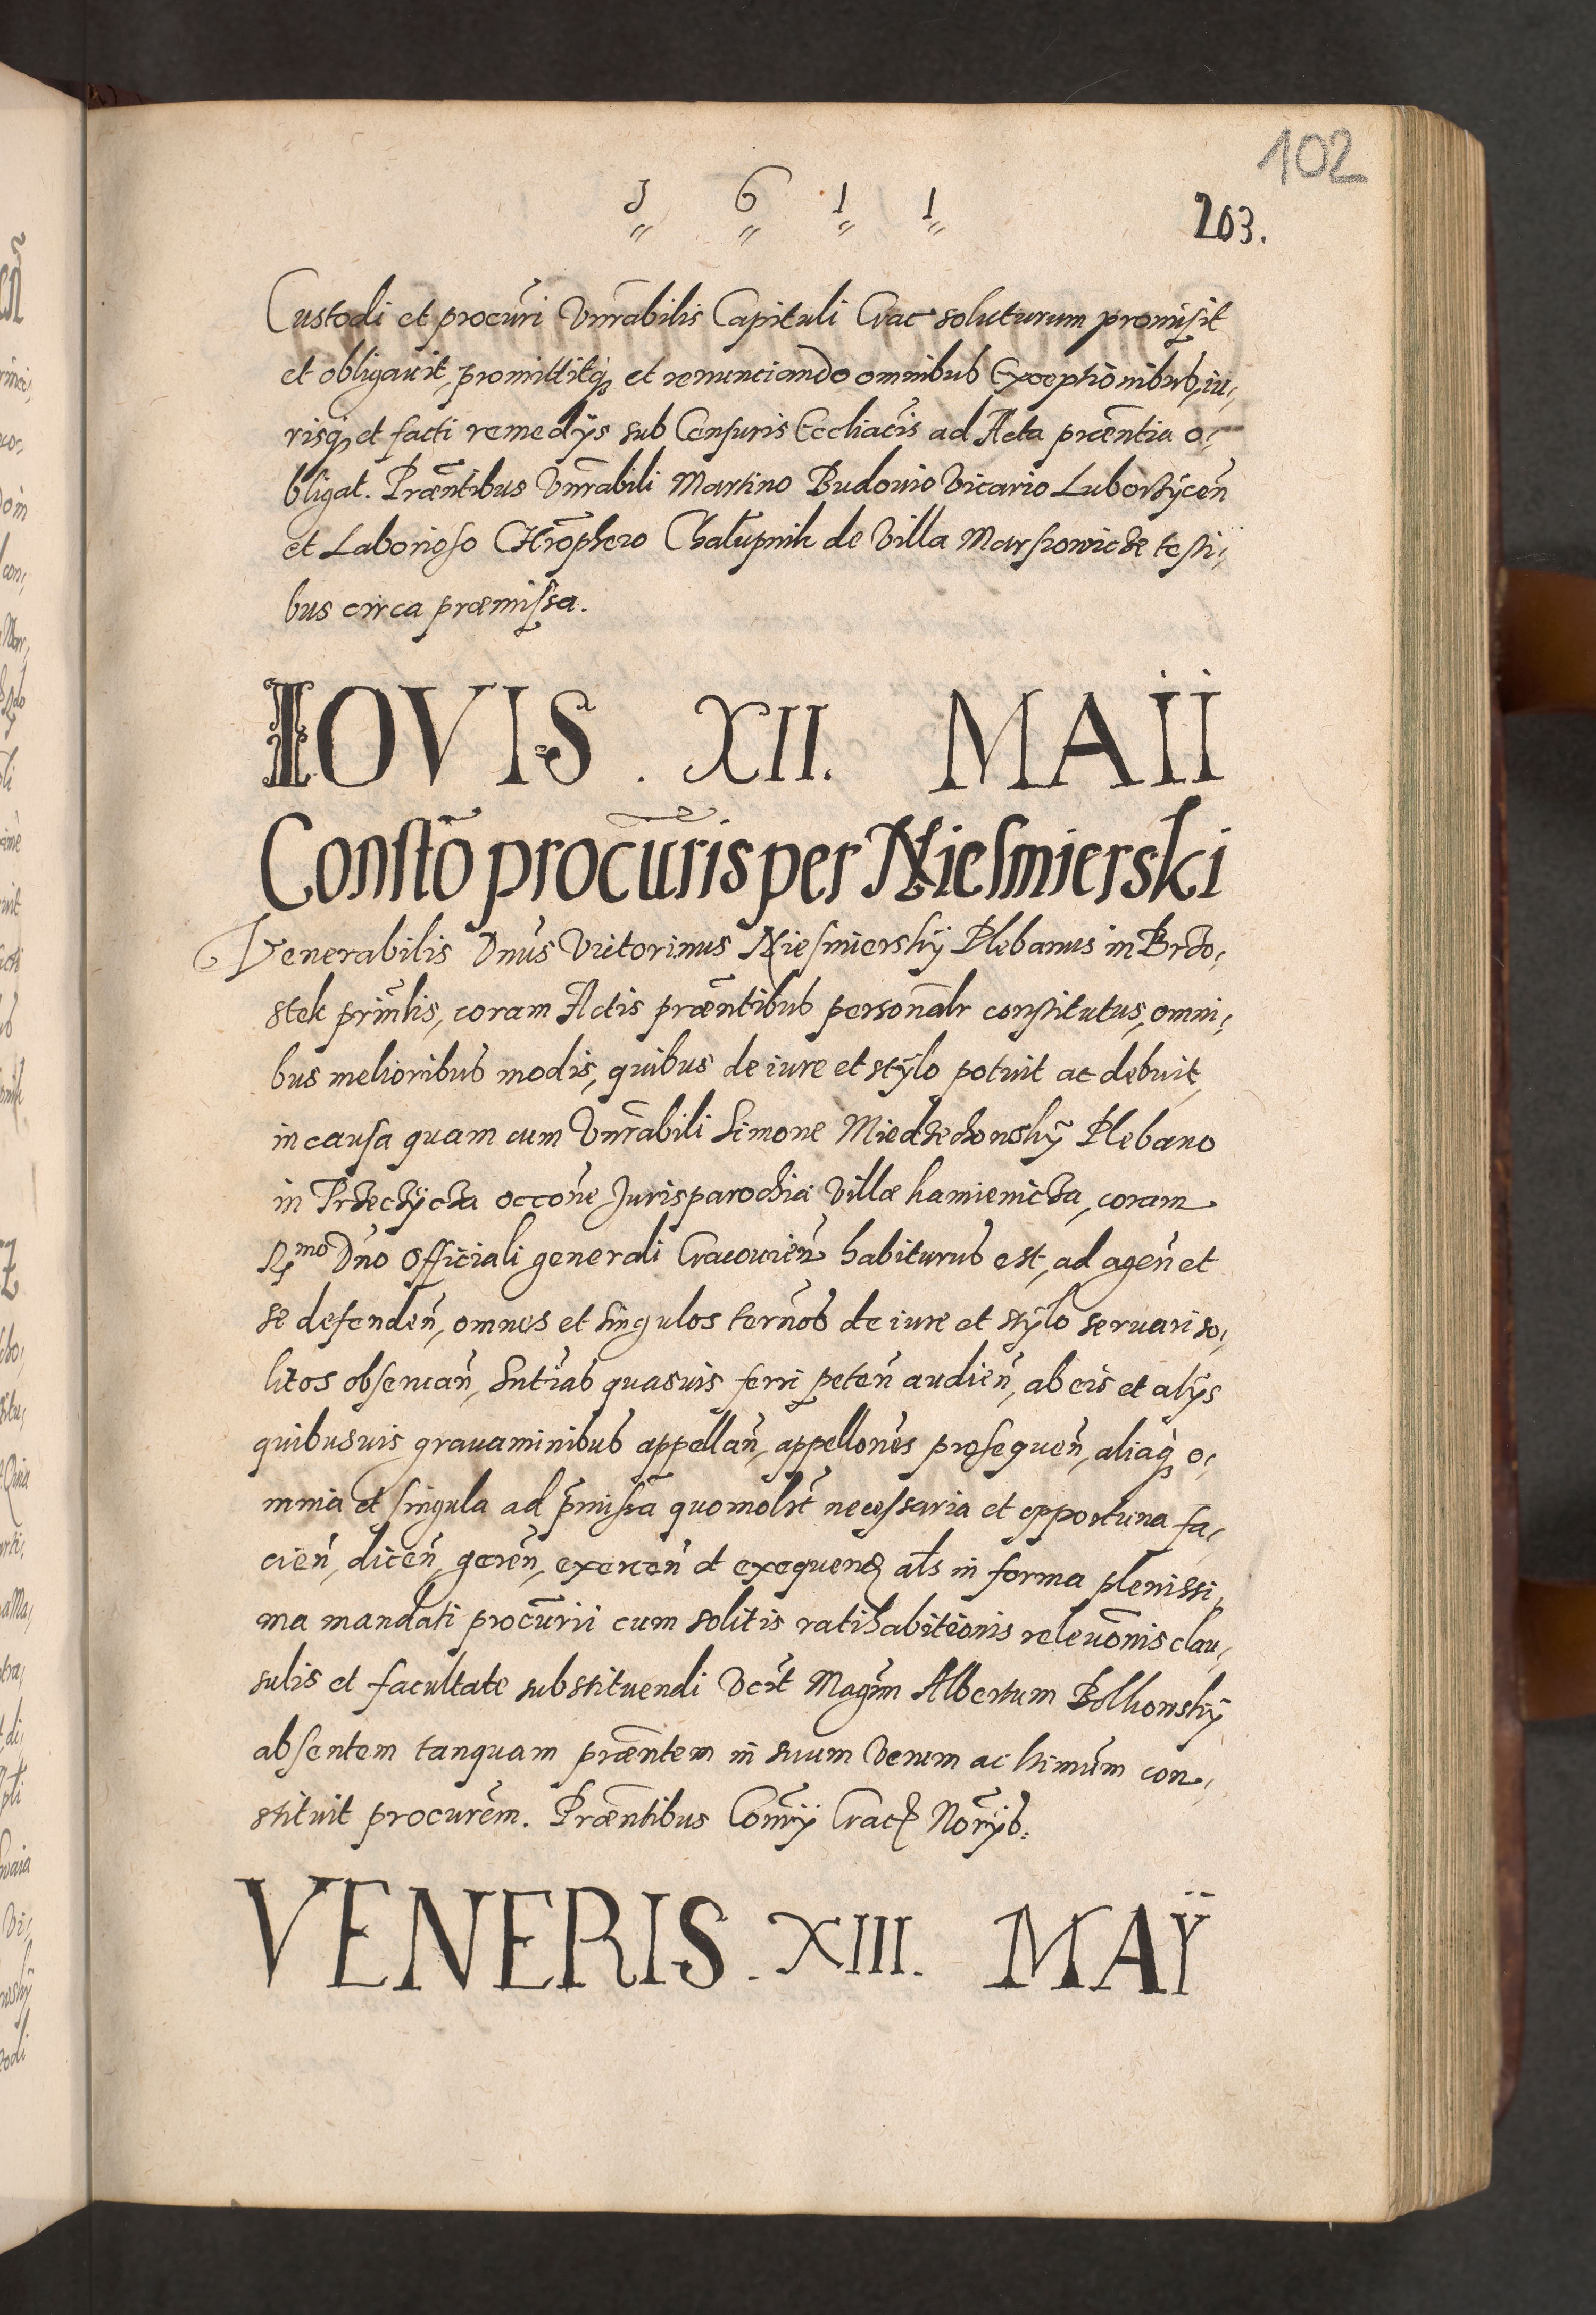 102
1 6 1 1
203.
Custodi et procūri Vnrābilis Capituli Crac soluturum promisit
et obligauit, promittitq; et renunciando omnibus Exceptionibus, iu,
risq; et facti remedijs sub Censuris Eccliacis ad Acta præntia o,
bligat. Præntibus Vnrābili Martino Budonio Vicario Luborzÿcen̄
et Laborioso Chrōphero Chałupnik de Villa Marszowicze testi,
bus circa præmissa.
IOVIS . XII. MAII
Constō procūris per Niesmierski
Venerabilis Dnūs Victorinus Niesmierskÿ Plebanus in Brzo,
stek prin̄lis, coram Actis præntibus personalr constitutus, omni,
bus melioribus modis, quibus de iure et stÿlo potuit ac debuit,
in causa quam cum Vnrābili Simone Miedzechowskÿ Plebano
in Przeczÿcza occōne Jurisparochiæ Villæ kamienicza, coram
R^mo Dn̄o Officiali generali Cracouien̄ habiturus est, ad agen̄ et
se defenden̄, omnes et singulos tern̄os de iure et stÿlo seruari so,
litos obseruan̄, Sntīas quasuis ferri peten̄ audien̄, ab eis et alijs
quibusuis grauaminibus appellan̄, appellōnes prosequen̄, aliaq; o,
mnia et singula ad p̄missa quomolt̄ necessaria et opportuna fa,
cien̄, dicen̄, geren̄, exercen̄ et exequend als in forma plenissi,
ma mandati procūrii cum solitis ratihabitionis releuōnis clau,
sulis et facultate substituendi Vcrt Magrm̄ Albertum Bolkowskÿ
absentem tanquam præntem in suum verum ac ltimūm con,
stituit procurēm. Præntibus Conrij Crac Norijs.
VENERIS . XIII. MAŸ